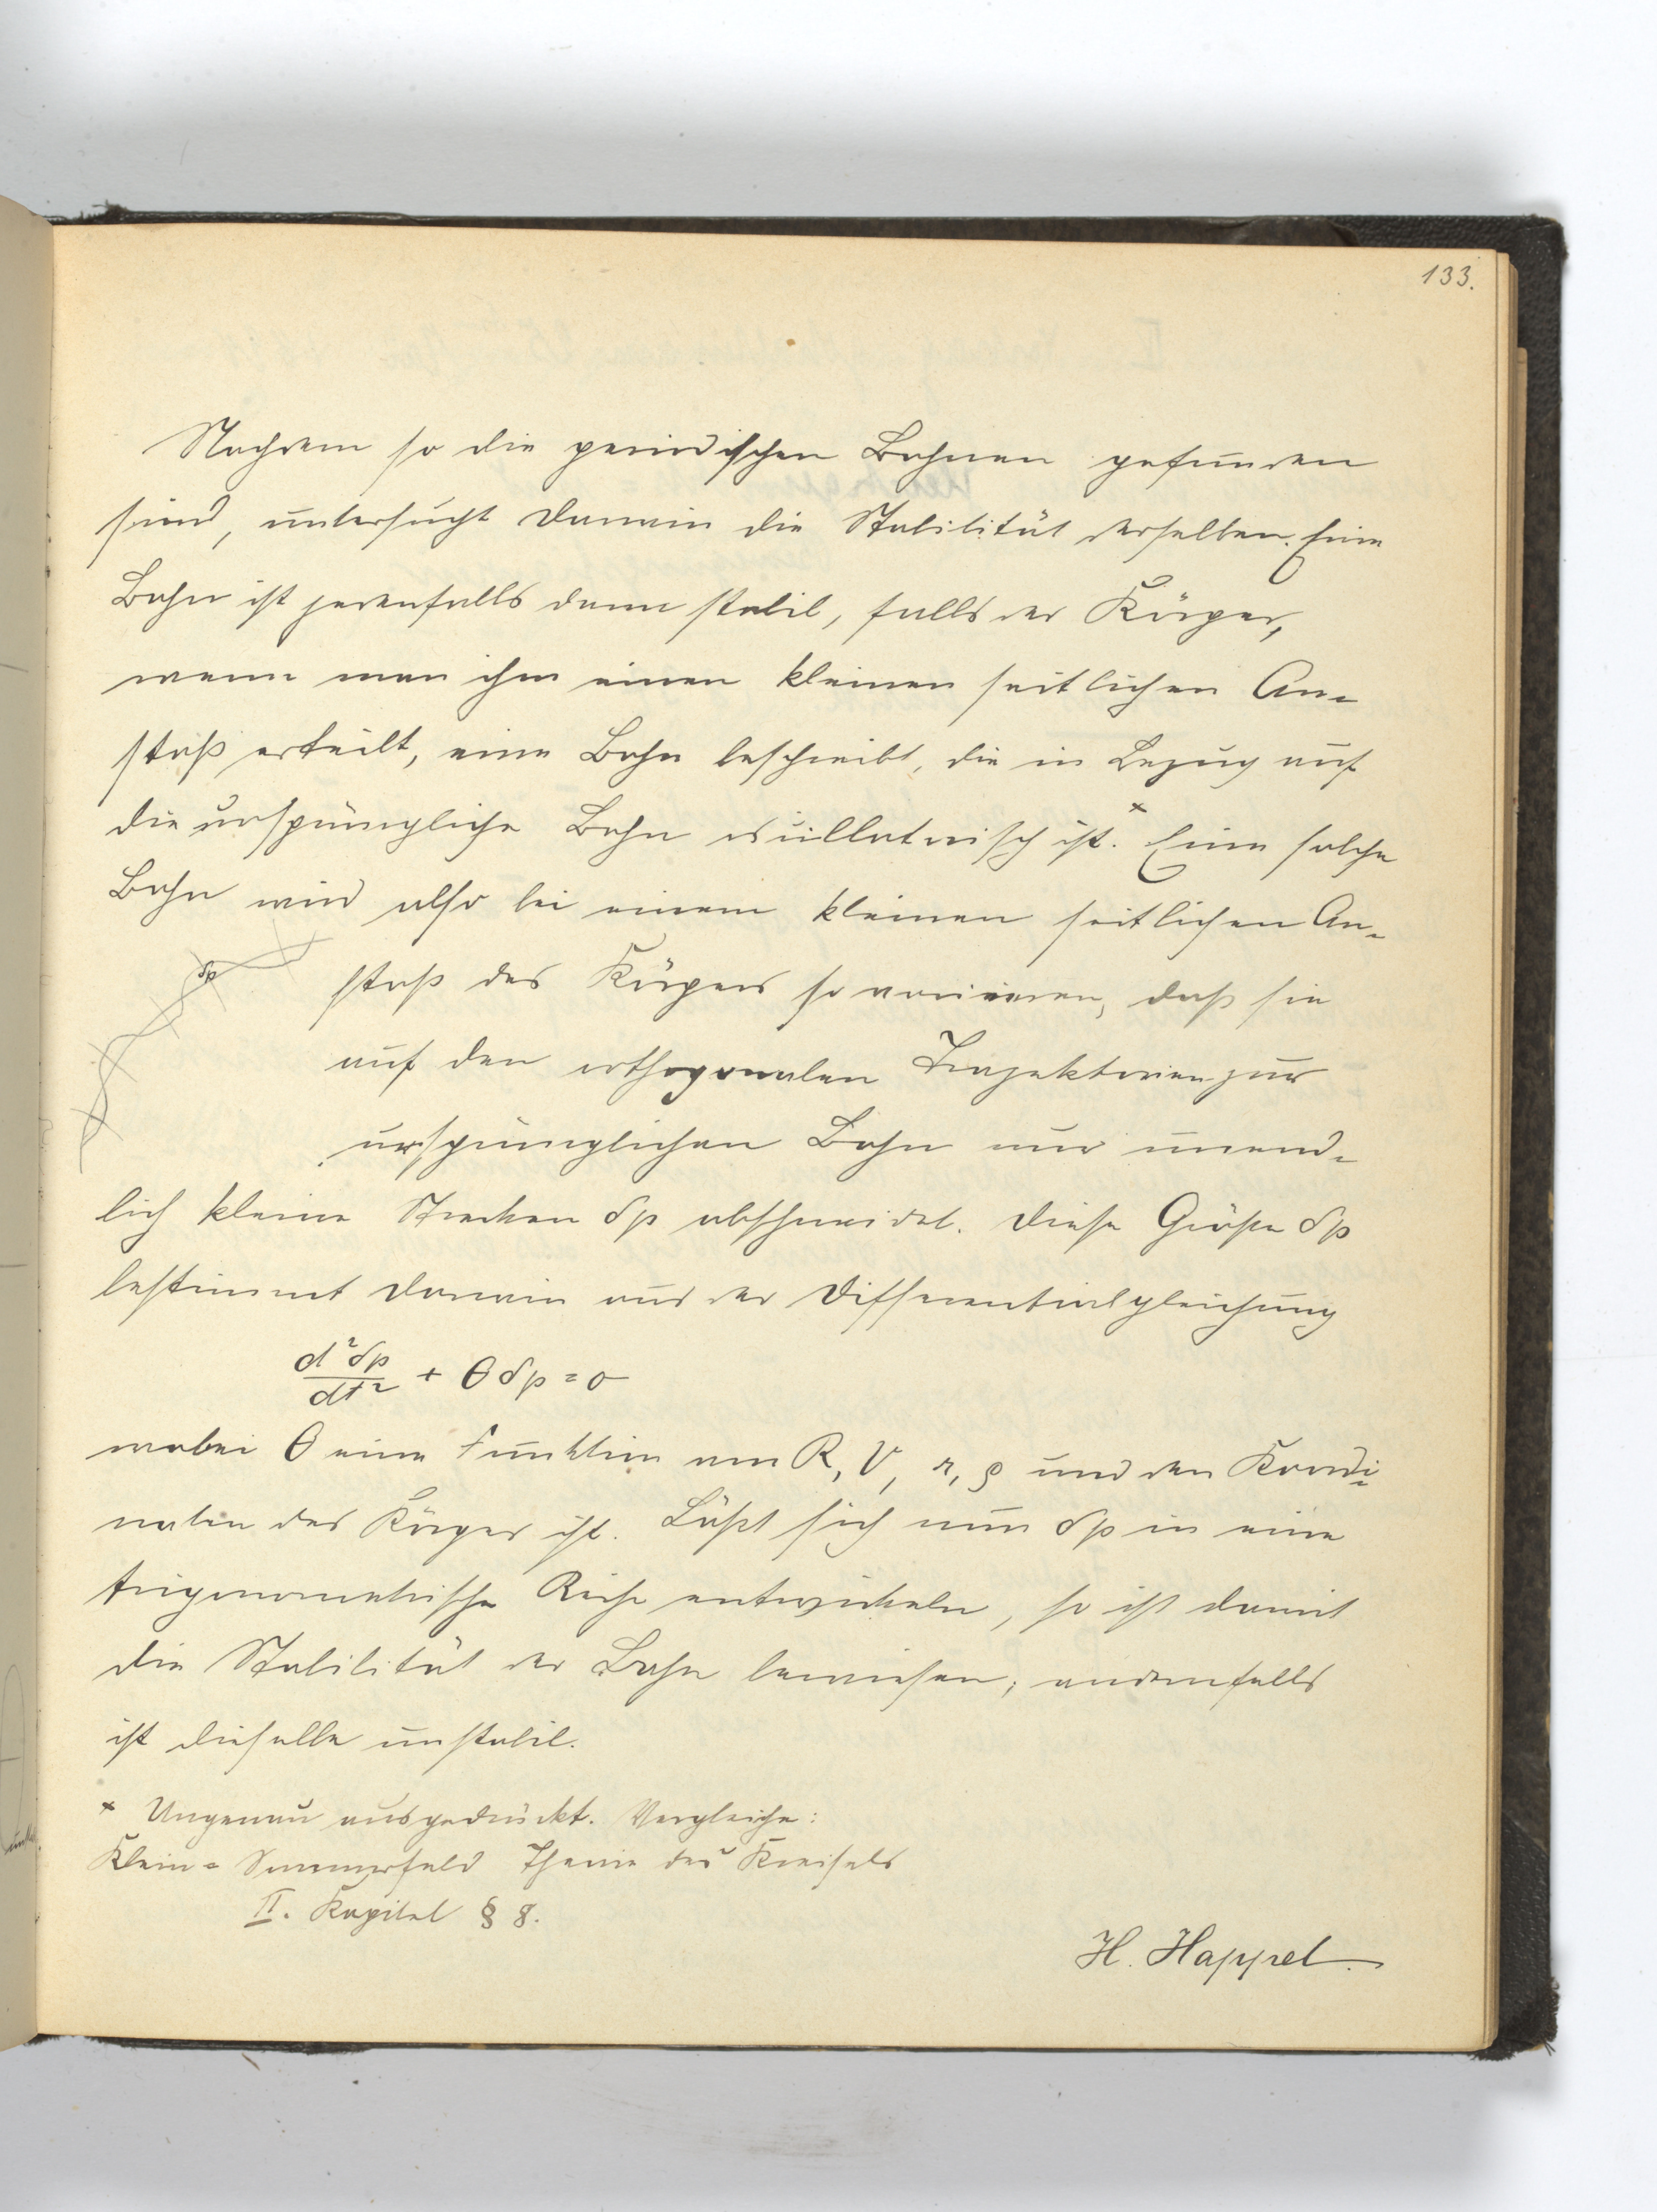 133.
Nachdem so die periodischen Bahnen gefunden
sind, untersucht Darwin die Stabilität derselben. Eine
Bahn ist jedenfalls dann stabil, falls der Körper,
wenn man ihm einen kleinen seitlichen An-
stoß erteilt, eine Bahn beschreibt, die in Bezug auf
die ursprüngliche Bahn oscillatorisch ist.× Eine solche
Bahn wird also bei einem kleinen seitlichen An-
stoß des Körpers so variieren, daß sie
auf den orthogonalen Trajektorien zur
ursprünglichen Bahn nur unend-
lich kleine Strecken δp abschneidet. Diese Größe δp
bestimmt Darwin aus der Differentialgleichung
δp
d²δp/dt² + Θ δp = 0
wobei Θ eine Funktion von R, V, r, ρ und den Koordi-
naten des Körper ist. Läßt sich nun δp in eine
trigonometrische Reihe entwickeln, so ist damit
die Stabilität der Bahn bewiesen; andernfalls
ist dieselbe unstabil.
× Ungenau ausgedrückt. Vergleiche:
Klein-Sommerfeld Theorie des Kreisels
II. Kapitel § 8.
H. Happel.